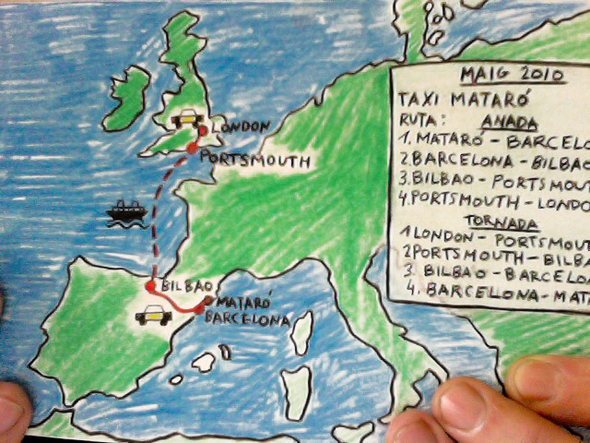 LONDON
PORTSMOUTH
BILBAO
MATARÓ
BARCELONA
MAIG 2010
TAXI MATARÓ
RUTA: ANADA
1. MATARÓ - BARCELO
2. BARCELONA - BILBA
3. BILBAO - PORTSMOUT
4. PORTSMOUTH - LONDO
TORNADA
1 LONDON - PORTSMOUT
2 PORTSMOUTH - BILBA
3. BILBAO - BARCELO
4. BARCELONA - MATA